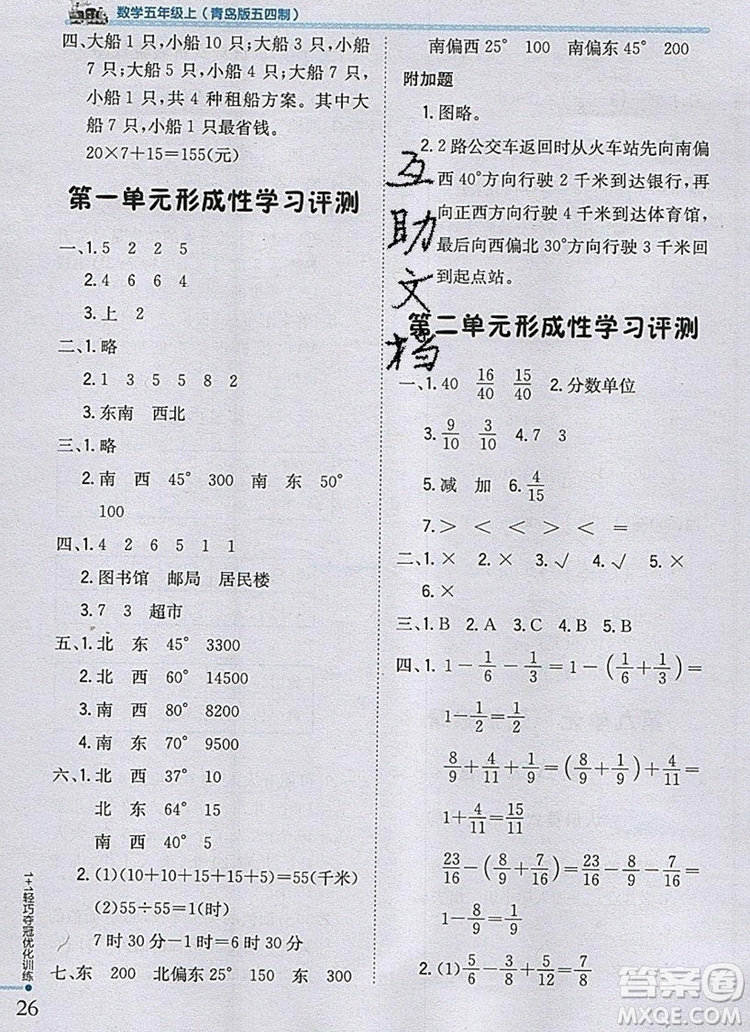 数学五年级上（青岛版五四制）
四、大船1只，小船10只；大船
4只，小船6只；大船7只，
小船1只，共4种租船方案。其中大
船7只，小船1只最省钱。
20×7+15=155(元)
第一单元形成性学习评测
一、1. 5 2 2 5
2. 4 6 4 6 1
3. 上 2
二、1. 略
2. 1 3 5 5 8 2
3. 东南 西北
三、1. 略
2. 南 西 45° 300 南 东 50°
100
四、1. 4 2 6 5 1 1
2. 图书馆 邮局 居民楼
3. 7 3 超市
五、1. 北 东 45° 3300
2. 北 西 60° 14800
3. 南 西 80° 8200
4. 南 东 70° 9500
六、1. 北 西 37° 10
北 东 64° 15
南 西 40° 5
2. (1)(10+10+15+15+5)=55(千米)
(2)55÷55=1(时)
7时30分-1时=6时30分
七、东 200 北偏东25° 300 东 200
南偏西25° 100 南偏东45° 200
附加题
1. 图略。
2. 2路公交车返回时从火车站先向南偏
西40°方向行驶2千米到达银行，再
向正西方向行驶4千米到达体育馆，
最后向西偏北30°方向行驶3千米回
到起点站。
第二单元形成性学习评测
一、1. 40 16/40 15/40 2. 分数单位
3. 9/10 3/10 4. 7 3
5. 减 加 6. 4/15
7. > < < < = >
二、1. × 2. × 3. × 4. √ 5. ×
6. ×
三、1. B 2. A 3. C 4. B 5. B
四、1. 1-1/6-1/3=1-(1/6+1/3)=
1-1/2=1/2
8/9+4/11+1/9=(8/9+1/9)+4/11=
1+4/11=15/11
23/16-(8/9+7/16)=23/16-7/16-8/9=
1-8/9=1/9
2. (1)
互助文档
1+1轻巧夺冠优化训练
26
答案圈
MXQE.COM